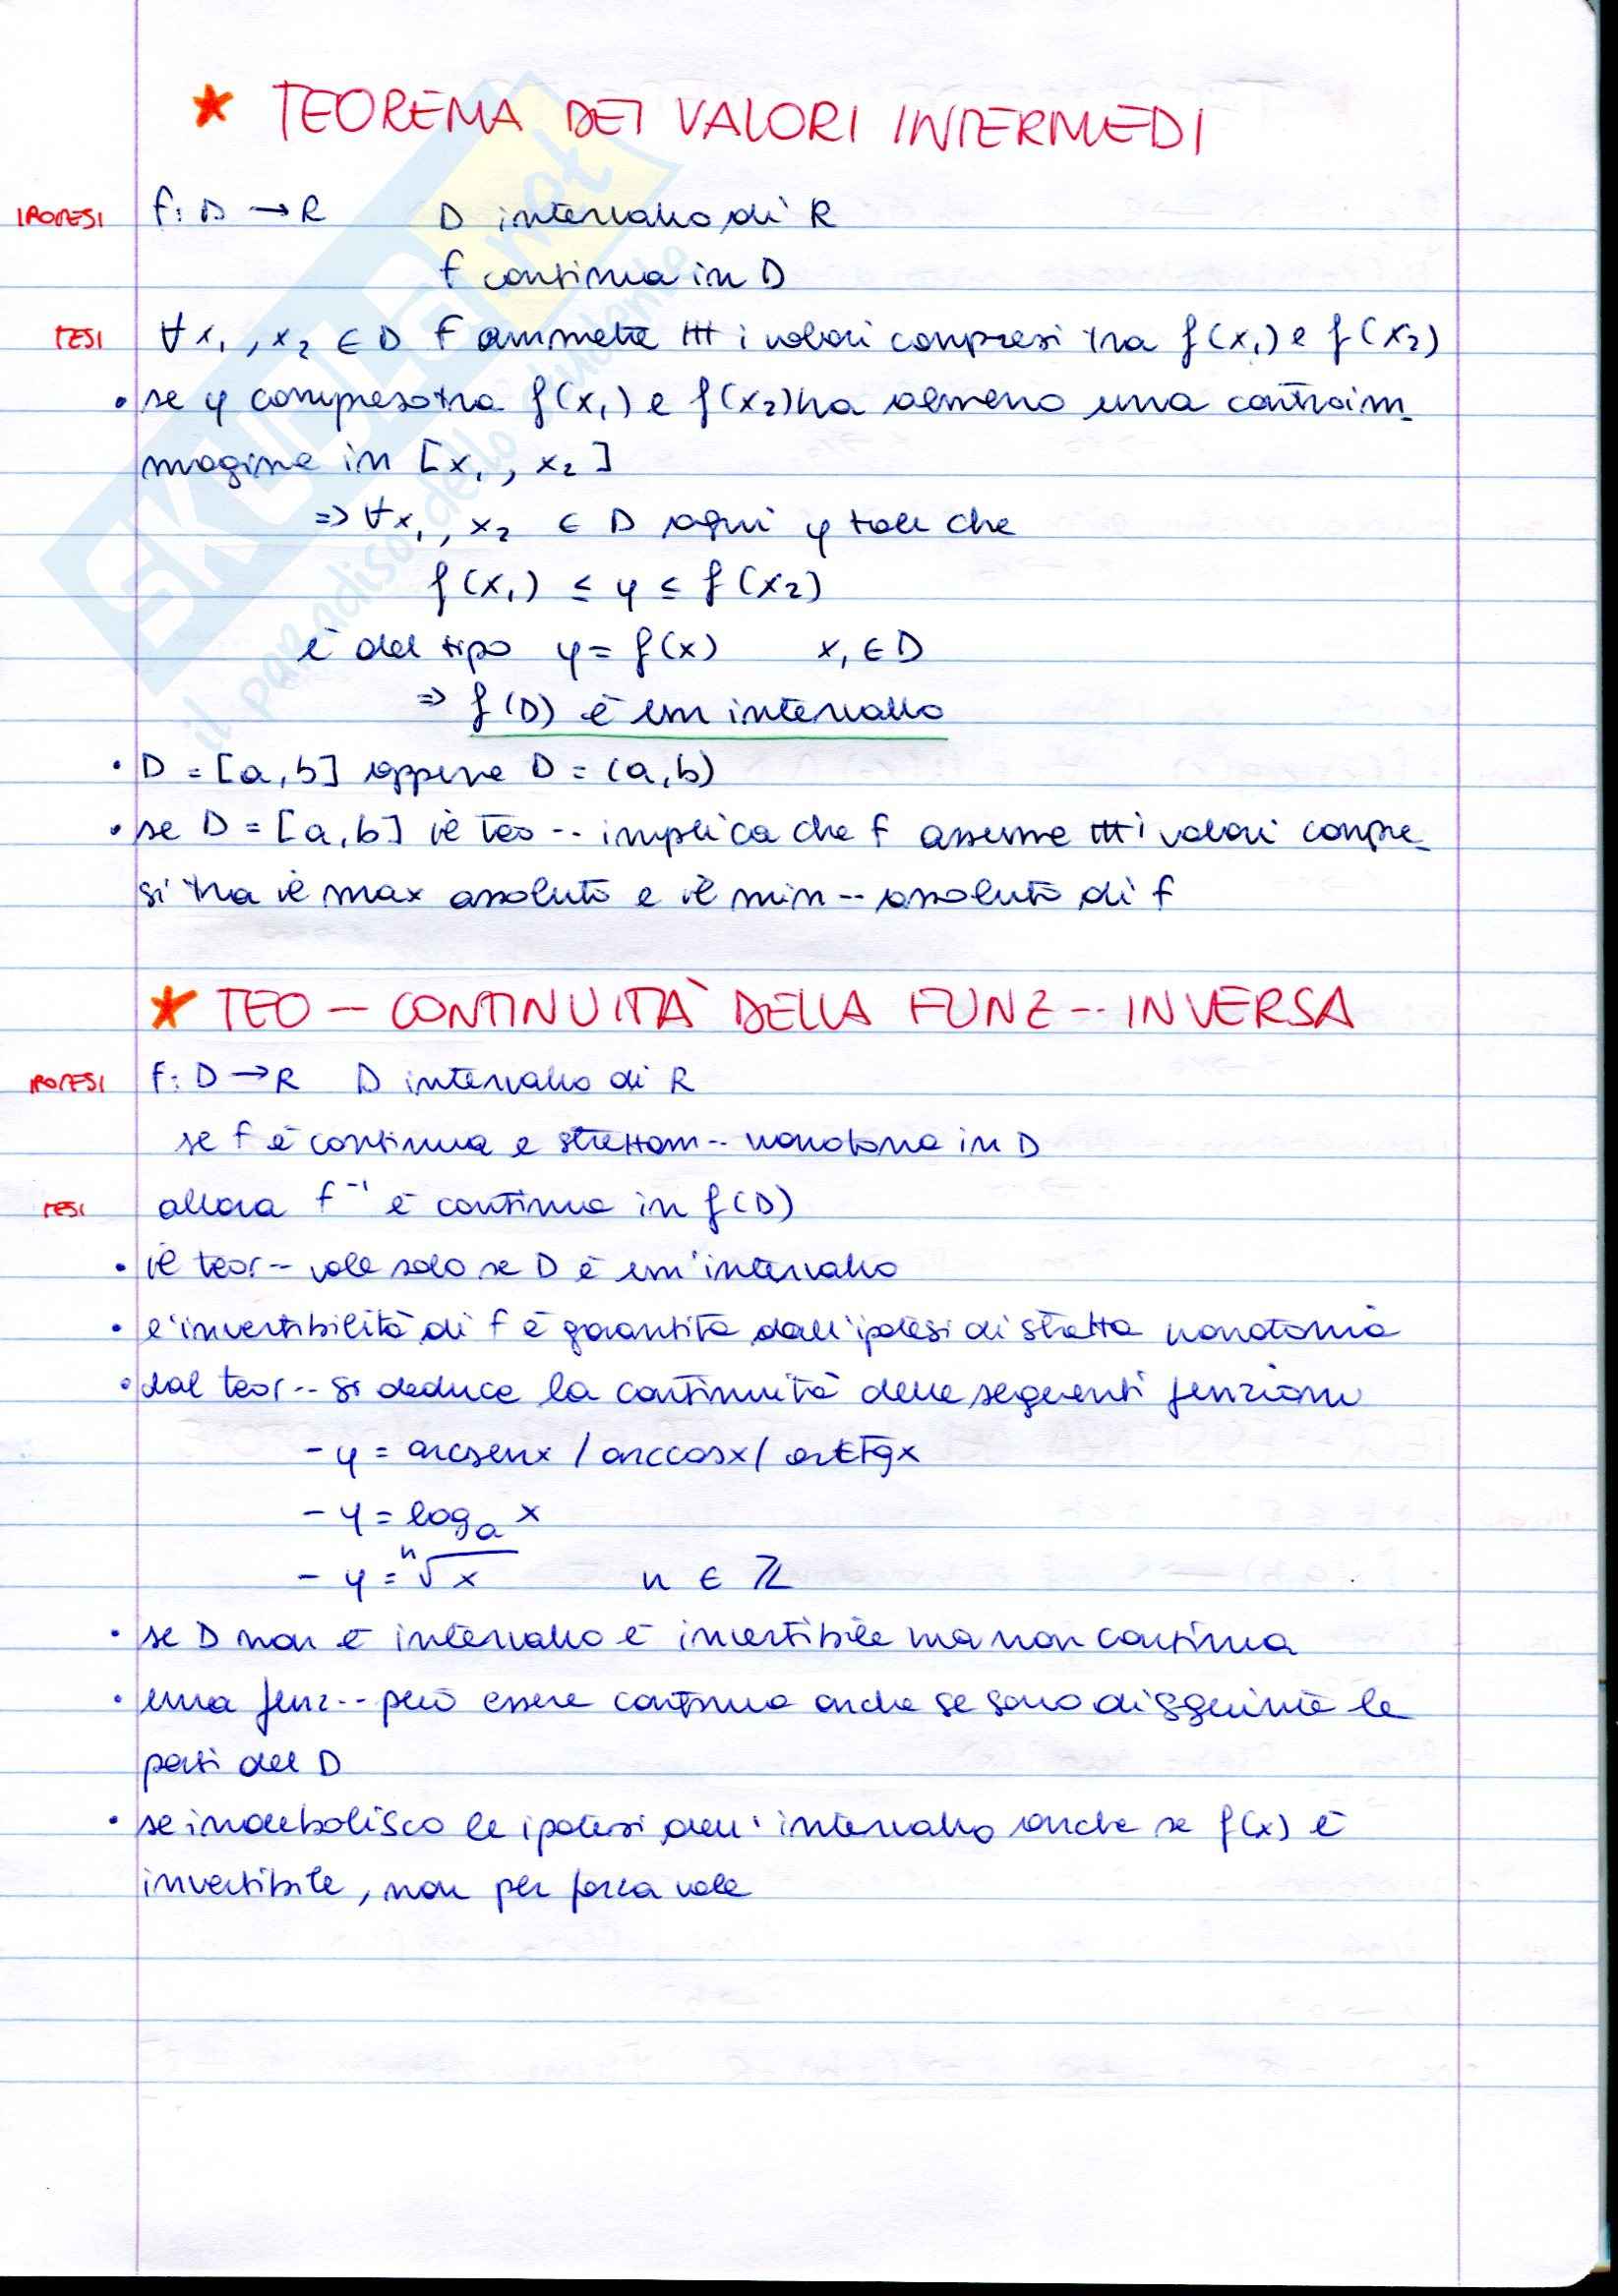 ★ TEOREMA DEI VALORI INTERMEDI
IPOTESI f: D → R D intervallo di R
f continua in D
TESI ∀ x₁, x₂ ∈ D f ammette ttt i valori compresi tra f(x₁) e f(x₂)
• se y compreso tra f(x₁) e f(x₂) ha almeno una controim_
magine in [x₁, x₂]
⇒ ∀x₁, x₂ ∈ D ogni y tale che
f(x₁) ≤ y ≤ f(x₂)
è del tipo y = f(x) x, ∈ D
⇒ f(D) è un intervallo
• D = [a, b] oppure D = (a, b)
• se D = [a, b] il teo -- implica che f assume ttt i valori compre_
si tra il max assoluto e il min -- assoluto di f
★ TEO -- CONTINUITÀ DELLA FUNZ -- INVERSA
IPOTESI f: D → R D intervallo di R
se f è continua e strettam -- monotona in D
TESI allora f⁻¹ è continua in f(D)
• il teor -- vale solo se D è un'intervallo
• l'invertibilità di f è garantita dall'ipotesi di stretta monotonia
• dal teor -- si deduce la continuità delle seguenti funzioni
- y = arcsenx / arccosx / arctgx
- y = logₐ x
- y = ⁿ√x n ∈ ℤ
• se D non è intervallo è invertibile ma non continua
• una funz -- può essere continua anche se sono disgiunte le
parti del D
• se indebolisco le ipotesi dell'intervallo anche se f(x) è
invertibile, non per forza vale
SKUOLA.net
il paradiso dello studente